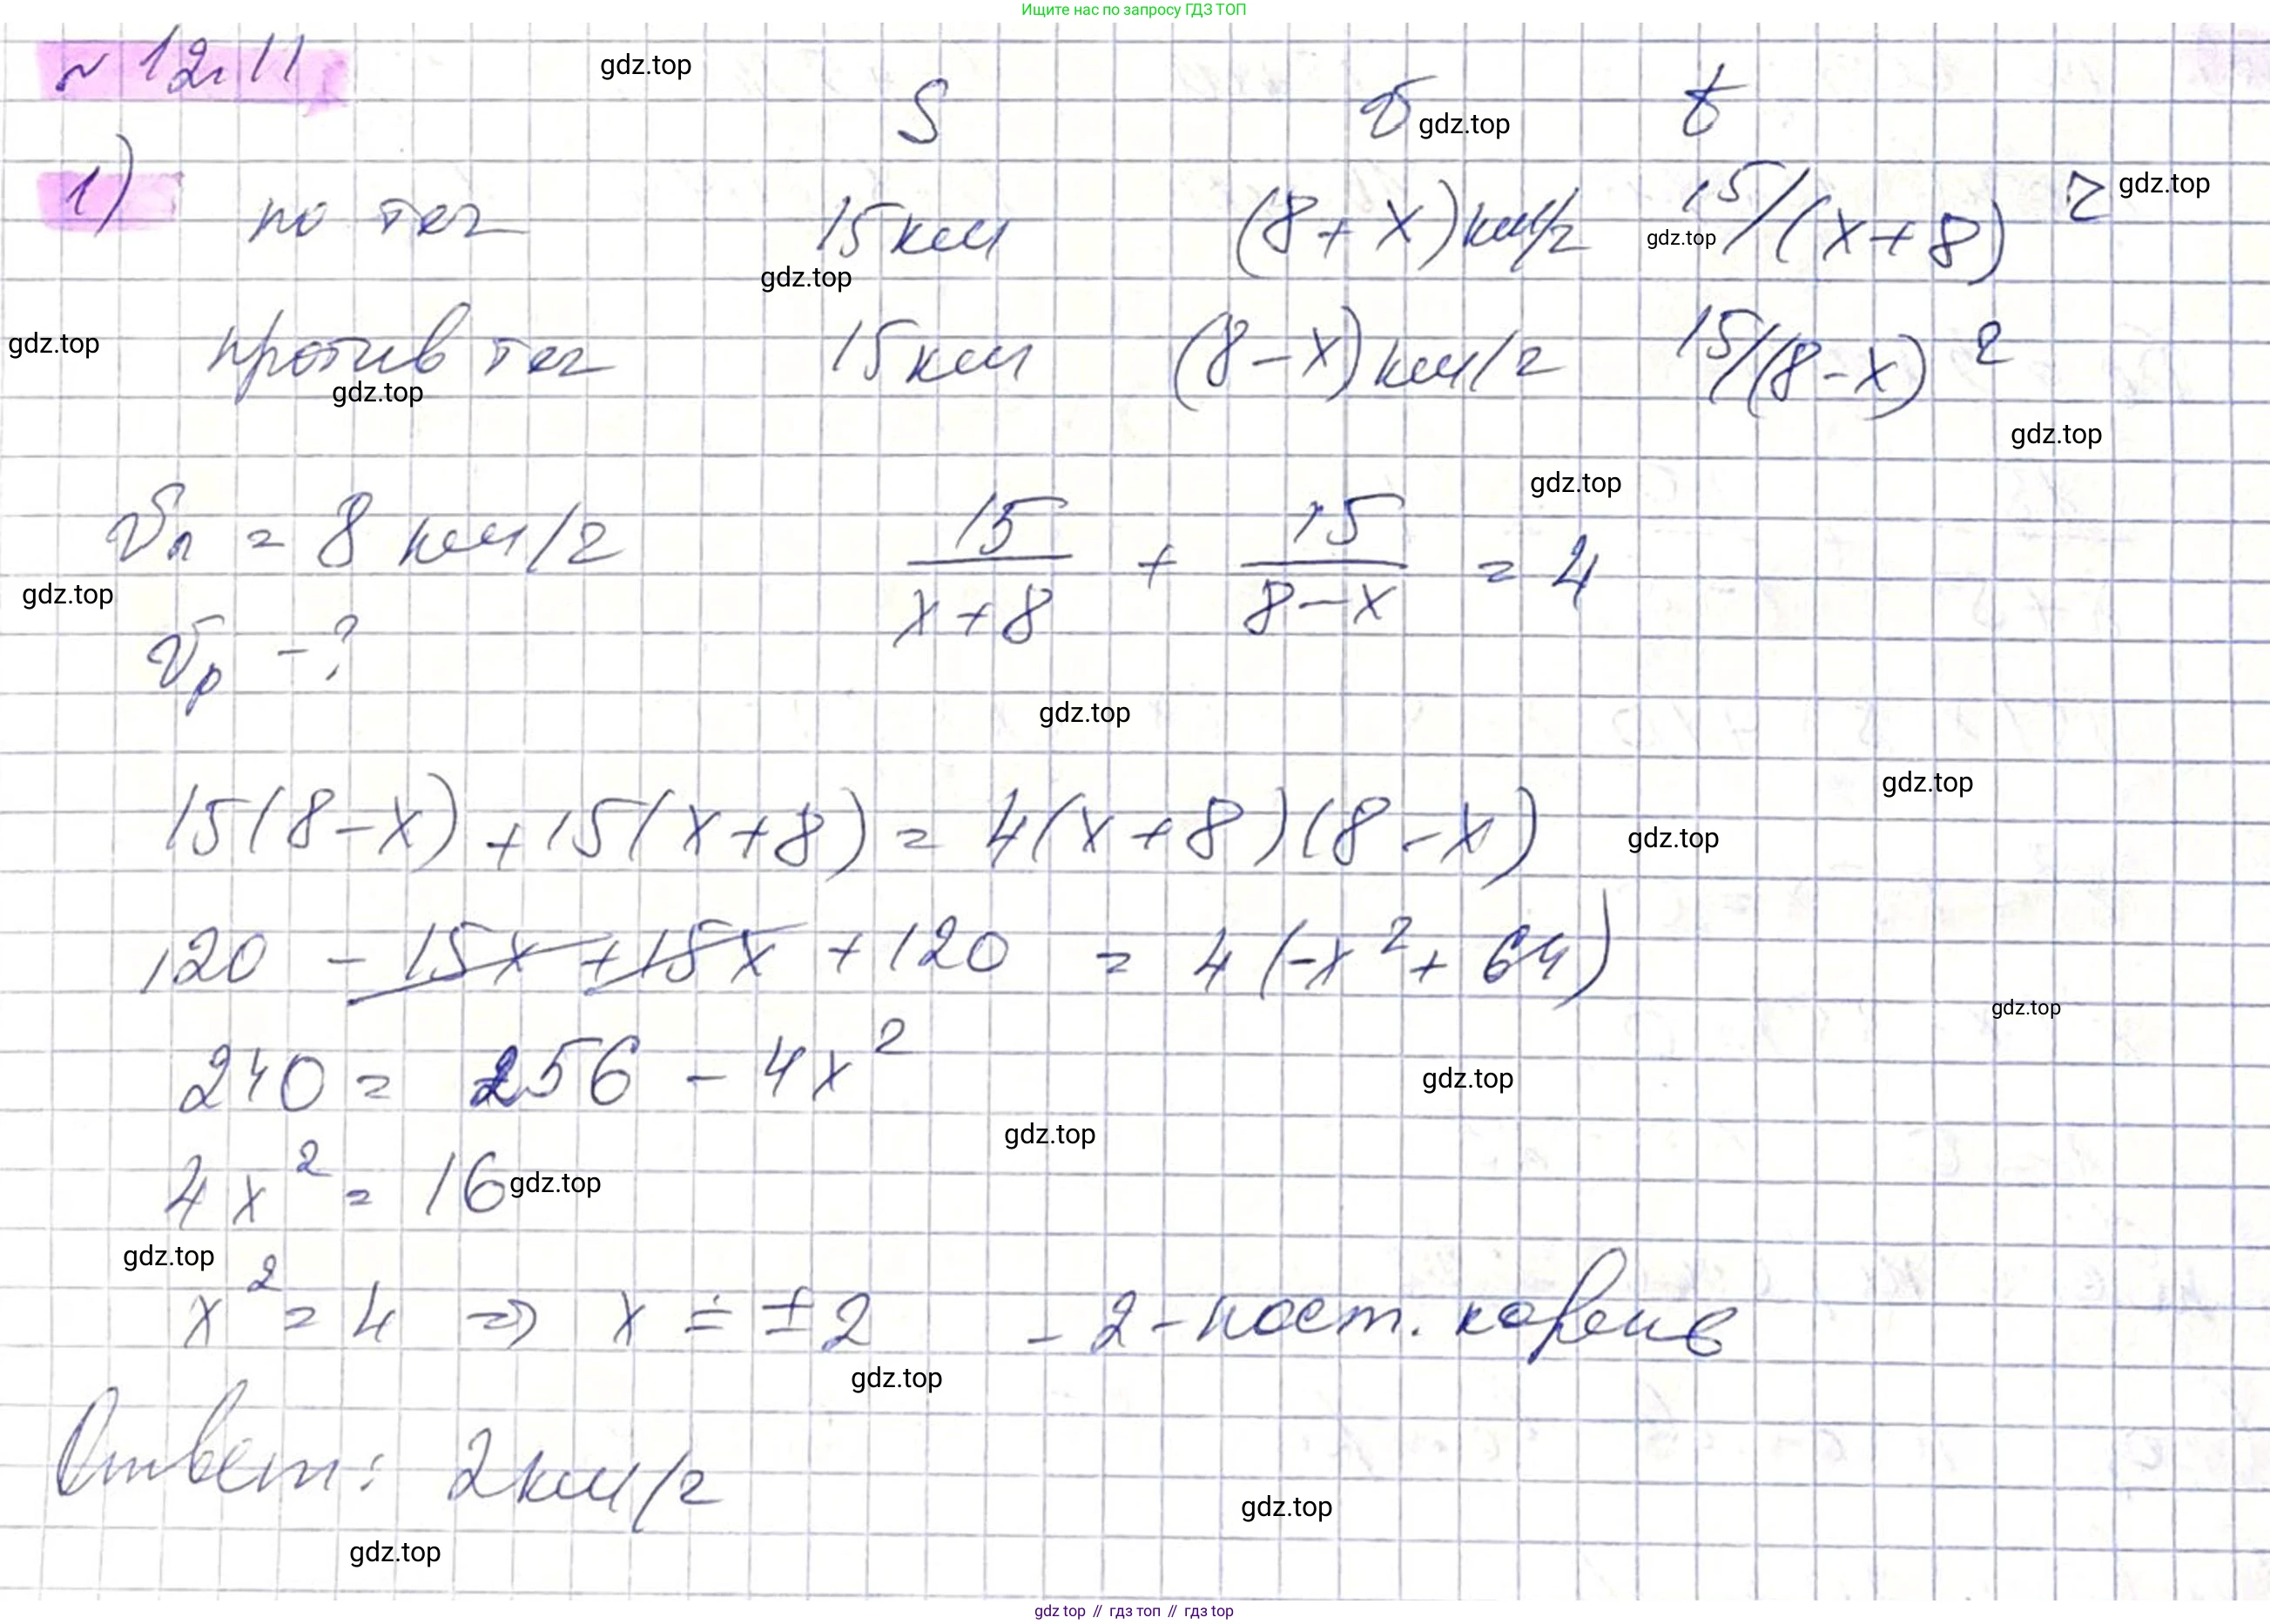 Ищите нас по запросу ГДЗ ТОП
№ 12.11
gdz.top
S v t
gdz.top
1) по теч 15 км (8+x) км/г 15/(x+8) г
gdz.top
gdz.top
gdz.top
gdz.top
против теч 15 км (8-x) км/г 15/(8-x) г
gdz.top
gdz.top
gdz.top
vл = 8 км/г 15/(x+8) + 15/(8-x) = 4
gdz.top
vр - ?
gdz.top
gdz.top
15(8-x) + 15(x+8) = 4(x+8)(8-x)
gdz.top
120 - 15x + 15x + 120 = 4(-x² + 64)
gdz.top
240 = 256 - 4x²
gdz.top
gdz.top
4x² = 16
gdz.top
gdz.top
x² = 4 => x = ±2 -2 - пост. корень
gdz.top
Ответ: 2 км/г
gdz.top
gdz.top
gdz top // гдз топ // гдз top